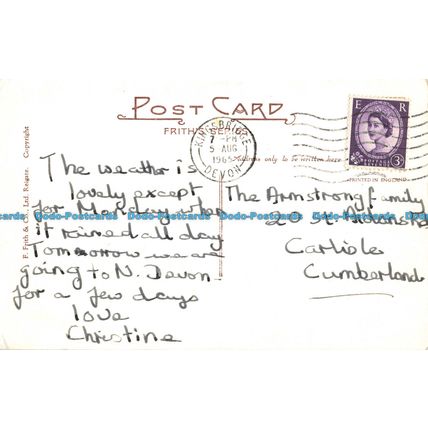 POST CARD
FRITH'S SERIES
KINGSBRIDGE
7 - PM
5 AUG
1965
DEVON
E R
3D
Address only to be written here
PRINTED IN ENGLAND
F. Frith & Co. Ltd. Reigate. Copyright
The weather is
lovely except
for Monday when
it rained all day
Tomorrow we are
going to N. Devon
for a few days
love
Christine
The Armstrong family
20 St.
Carlisle
Cumberland
Dodo-Postcards Dodo-Postcards Dodo-Postcards